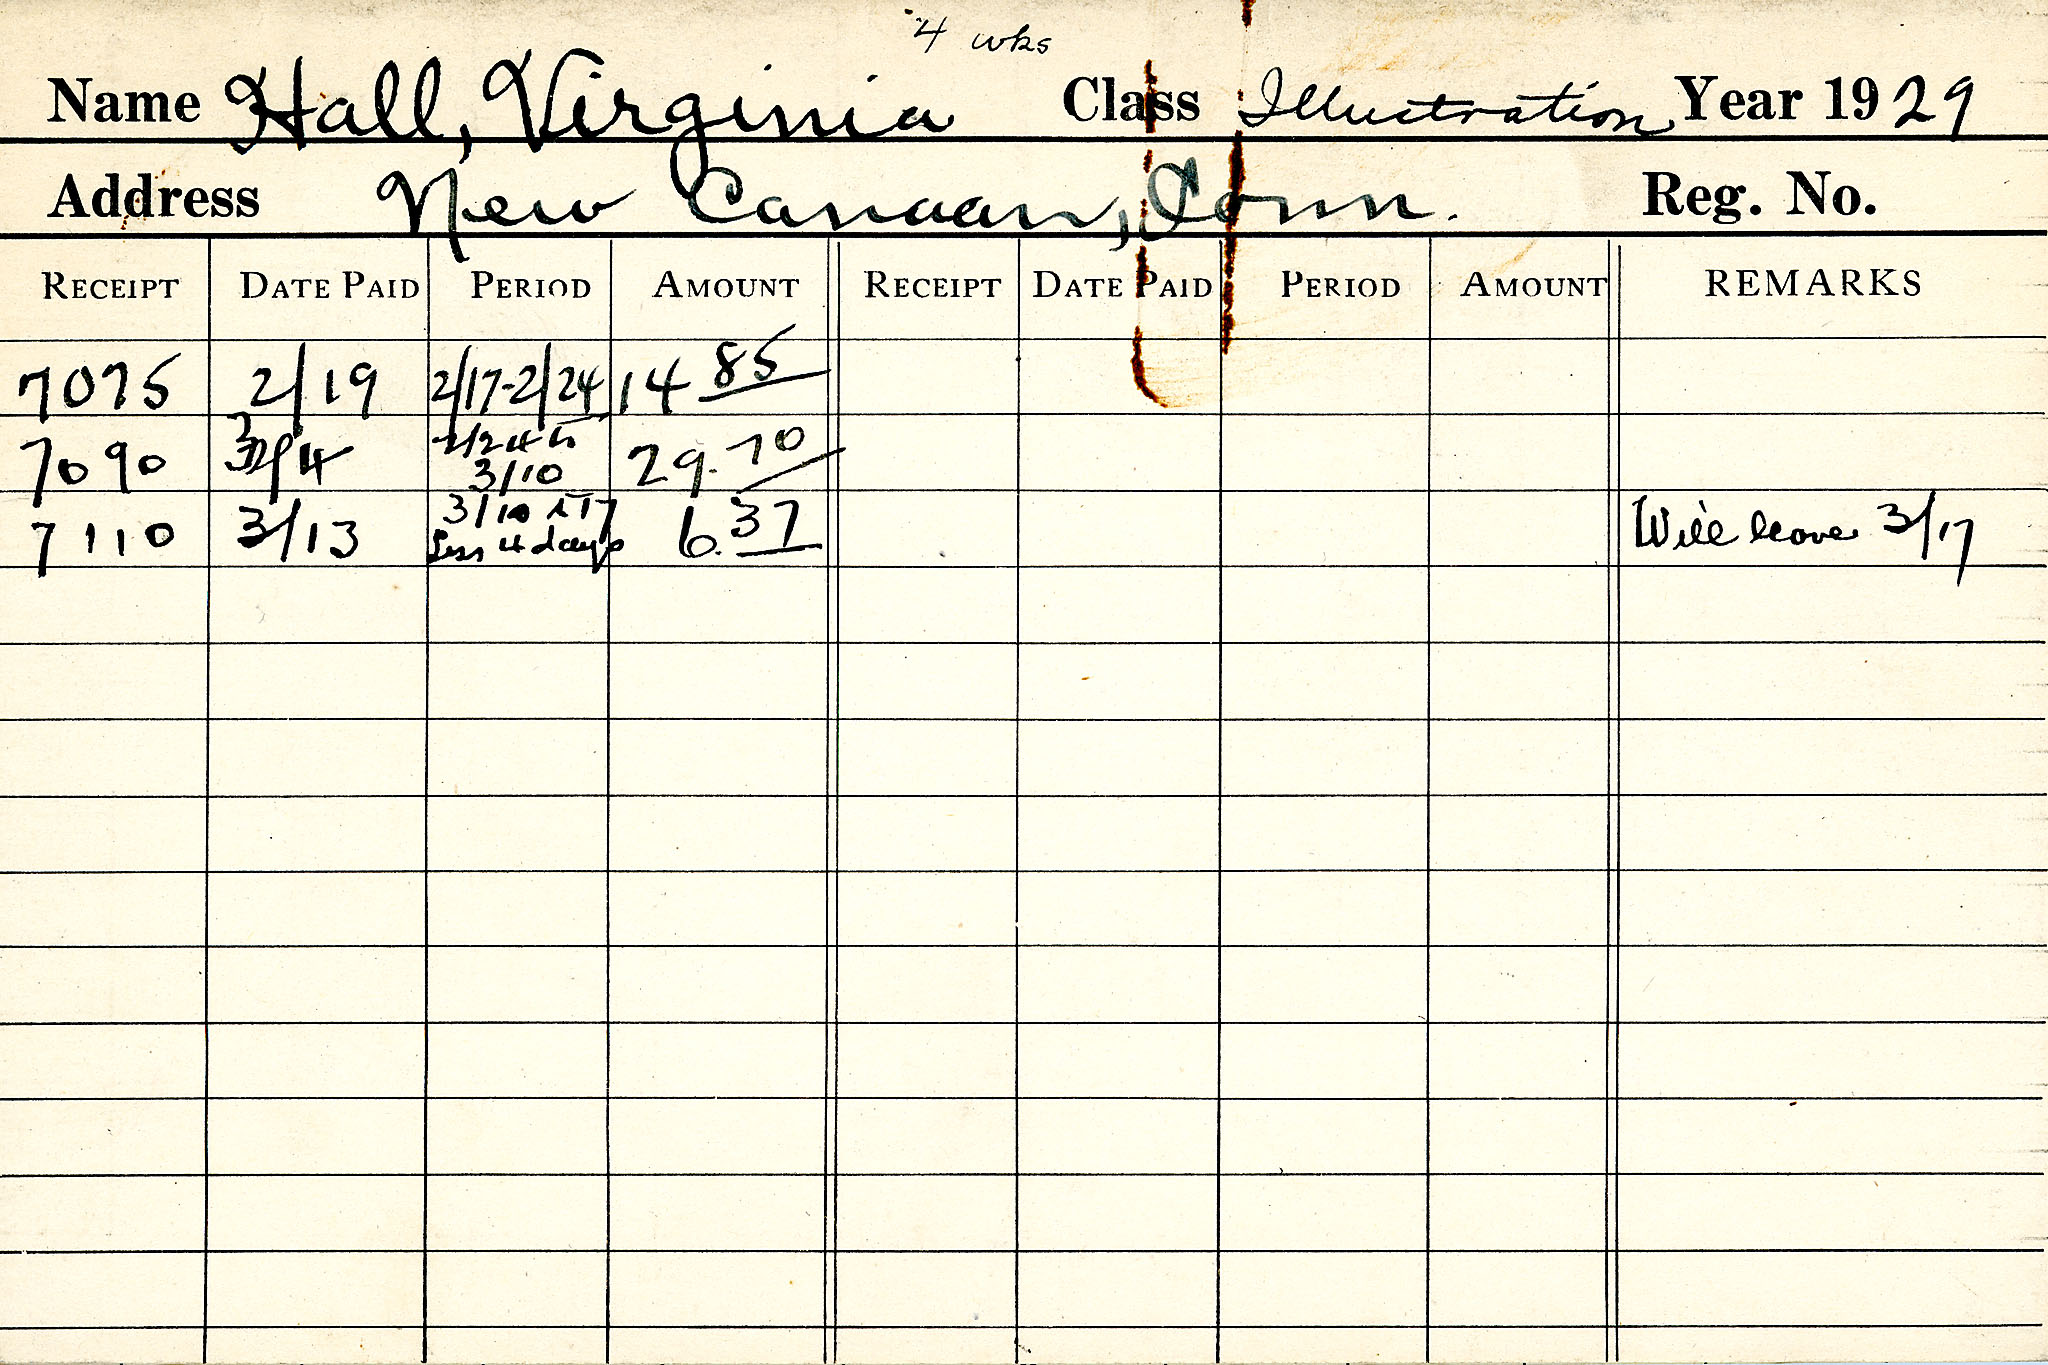 4 wks
Name Hall, Virginia Class Illustration Year 1929
Address New Canaan, Conn. Reg. No.
RECEIPT DATE PAID PERIOD AMOUNT RECEIPT DATE PAID PERIOD AMOUNT REMARKS
7075 2/19 2/17-2/24 14 85
7090 3/4 2/24 to 3/10 29.70
7110 3/13 3/10 to 17 Less 4 days 6.37 Will leave 3/17